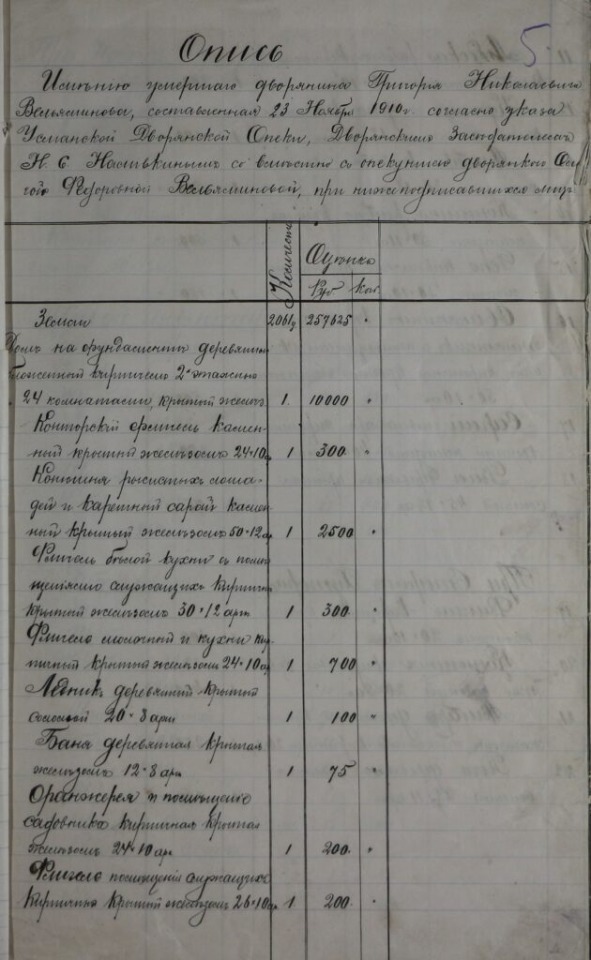 5
Опись
Имѣнию умершаго дворянина Григорія Николаевича
Вельяминова, составленная 23 Ноября 1910 г. согласно указа
Усманской Дворянской Опеки, Дворянскимъ Засѣдателемъ
Н. Е Насѣкинымъ со вмѣстно съ опекуншею дворянкой Оль
гой Федоровной Вельяминовой, при нижеподписавшихся лиц
Количество Оцѣнка
Руб Коп
Земли 2061 257625 "
Домъ на фундаментѣ деревянн
обложенный кирпичемъ 2х этажный
24 комнатами, крытый желѣз 1. 10000 "
Конторскій флигель камен-
ный крытый желѣзомъ 24×10 ар 1 300 "
Конюшня рысистыхъ лоша-
дей и каретный сарай камен
ный крытый желѣзомъ 50×12 ар 1 2500 "
Флигель бѣлой кухни съ помѣ
щеніемъ служащихъ кирпичн
крытый желѣзомъ 30×12 арш 1 300 "
Флигель молочный и кухни кир
пичный крытый желѣзомъ 24×10 ар 1 700 "
Ледникъ деревянный крытый
соломой 20×8 арш 1 100 "
Баня деревянная крытая
желѣзомъ 12×8 арш 1 75 "
Оранжерея и помѣщеніе
садовника кирпичная крытая
желѣзомъ 24×10 арш 1 200. "
Флигель помѣщеніе служащихъ
кирпично крытый желѣзомъ 26×10 ар 1 200. "